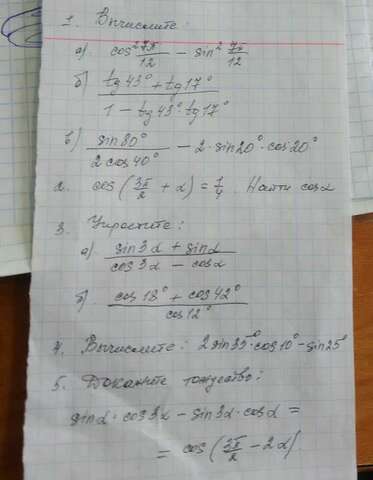 1. Вычислите:
а) cos² 7π/12 − sin² 7π/12
б) (tg 43° + tg 17°) / (1 − tg 43° · tg 17°)
в) sin 80° / (2 cos 40°) − 2 · sin 20° · cos 20°
2. cos (3π/2 + α) = 1/4. Найти cos α
3. Упростите:
а) (sin 3α + sin α) / (cos 3α − cos α)
б) (cos 18° + cos 42°) / cos 12°
4. Вычислите: 2 sin 35° · cos 10° − sin 25°
5. Докажите тождество:
sin α · cos 3α − sin 3α · cos α =
= cos (3π/2 − 2α)